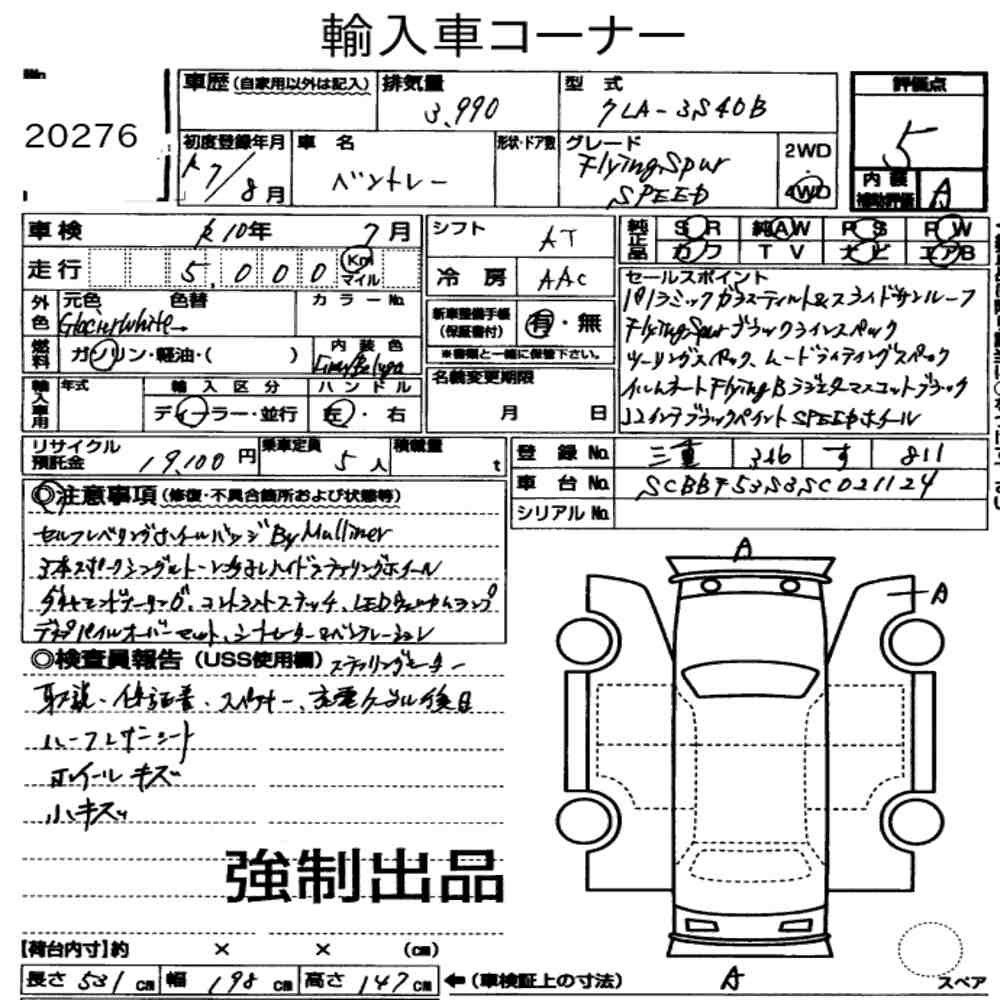 輸入車コーナー
No
20276
車歴 (自家用以外は記入) 排気量 3,990 型式 7LA-3S40B
評価点 5
初度登録年月 R7/8月 車名 ベントレー 形状・ドア数 グレード Flying Spur SPEED 2WD 4WD
内装補助評価 A
車検 R10年 7月 シフト AT 純正品 SR 純AW PS PW
走行 5,000 Km マイル 冷房 AAC カワ TV ナビ エアB
外色 元色 色替 カラーNo. Glacier White
新車整備手帳 (保証書付) 有・無
※書類と一緒に保管下さい。
燃料 ガソリン・軽油・( ) 内装色
輸入車用 年式 輸入区分 ディーラー・並行 ハンドル 左・右
名義変更期限 月 日
セールスポイント
パノラミックガラスティルト&スライドサンルーフ
Flying Spur ブラックラインスペック
ツーリングスペック、ムードライティングスペック
イルミネートFlying Bラジエターマスコットブラック
22インチブラックペイントSPEEDホイール
リサイクル預託金 19,100円 乗車定員 5人 積載量 t
登録No. 三重 346 す 811
車台No. SCBBF53S3SC021124
シリアルNo.
◎注意事項 (修復・不具合箇所および状態等)
セルフレべリングホイールバッジ By Mulliner
3本スポークシングルトーン ハイドステアリングホイール
ダイヤモンドキルティング、コントラストステッチ、LEDウェルカムランプ
ディープパイルオーバーマット、シートヒーター&ベンチレーション
◎検査員報告 (USS使用欄) ステアリングヒーター
取説・保証書、スペアキー、充電ケーブル後日
ルーフレザーシート
ホイールキズ
小キズ
強制出品
A
A
A
【荷台内寸】約 × × (cm)
長さ 531 cm 幅 198 cm 高さ 147 cm ←(車検証上の寸法)
スペア